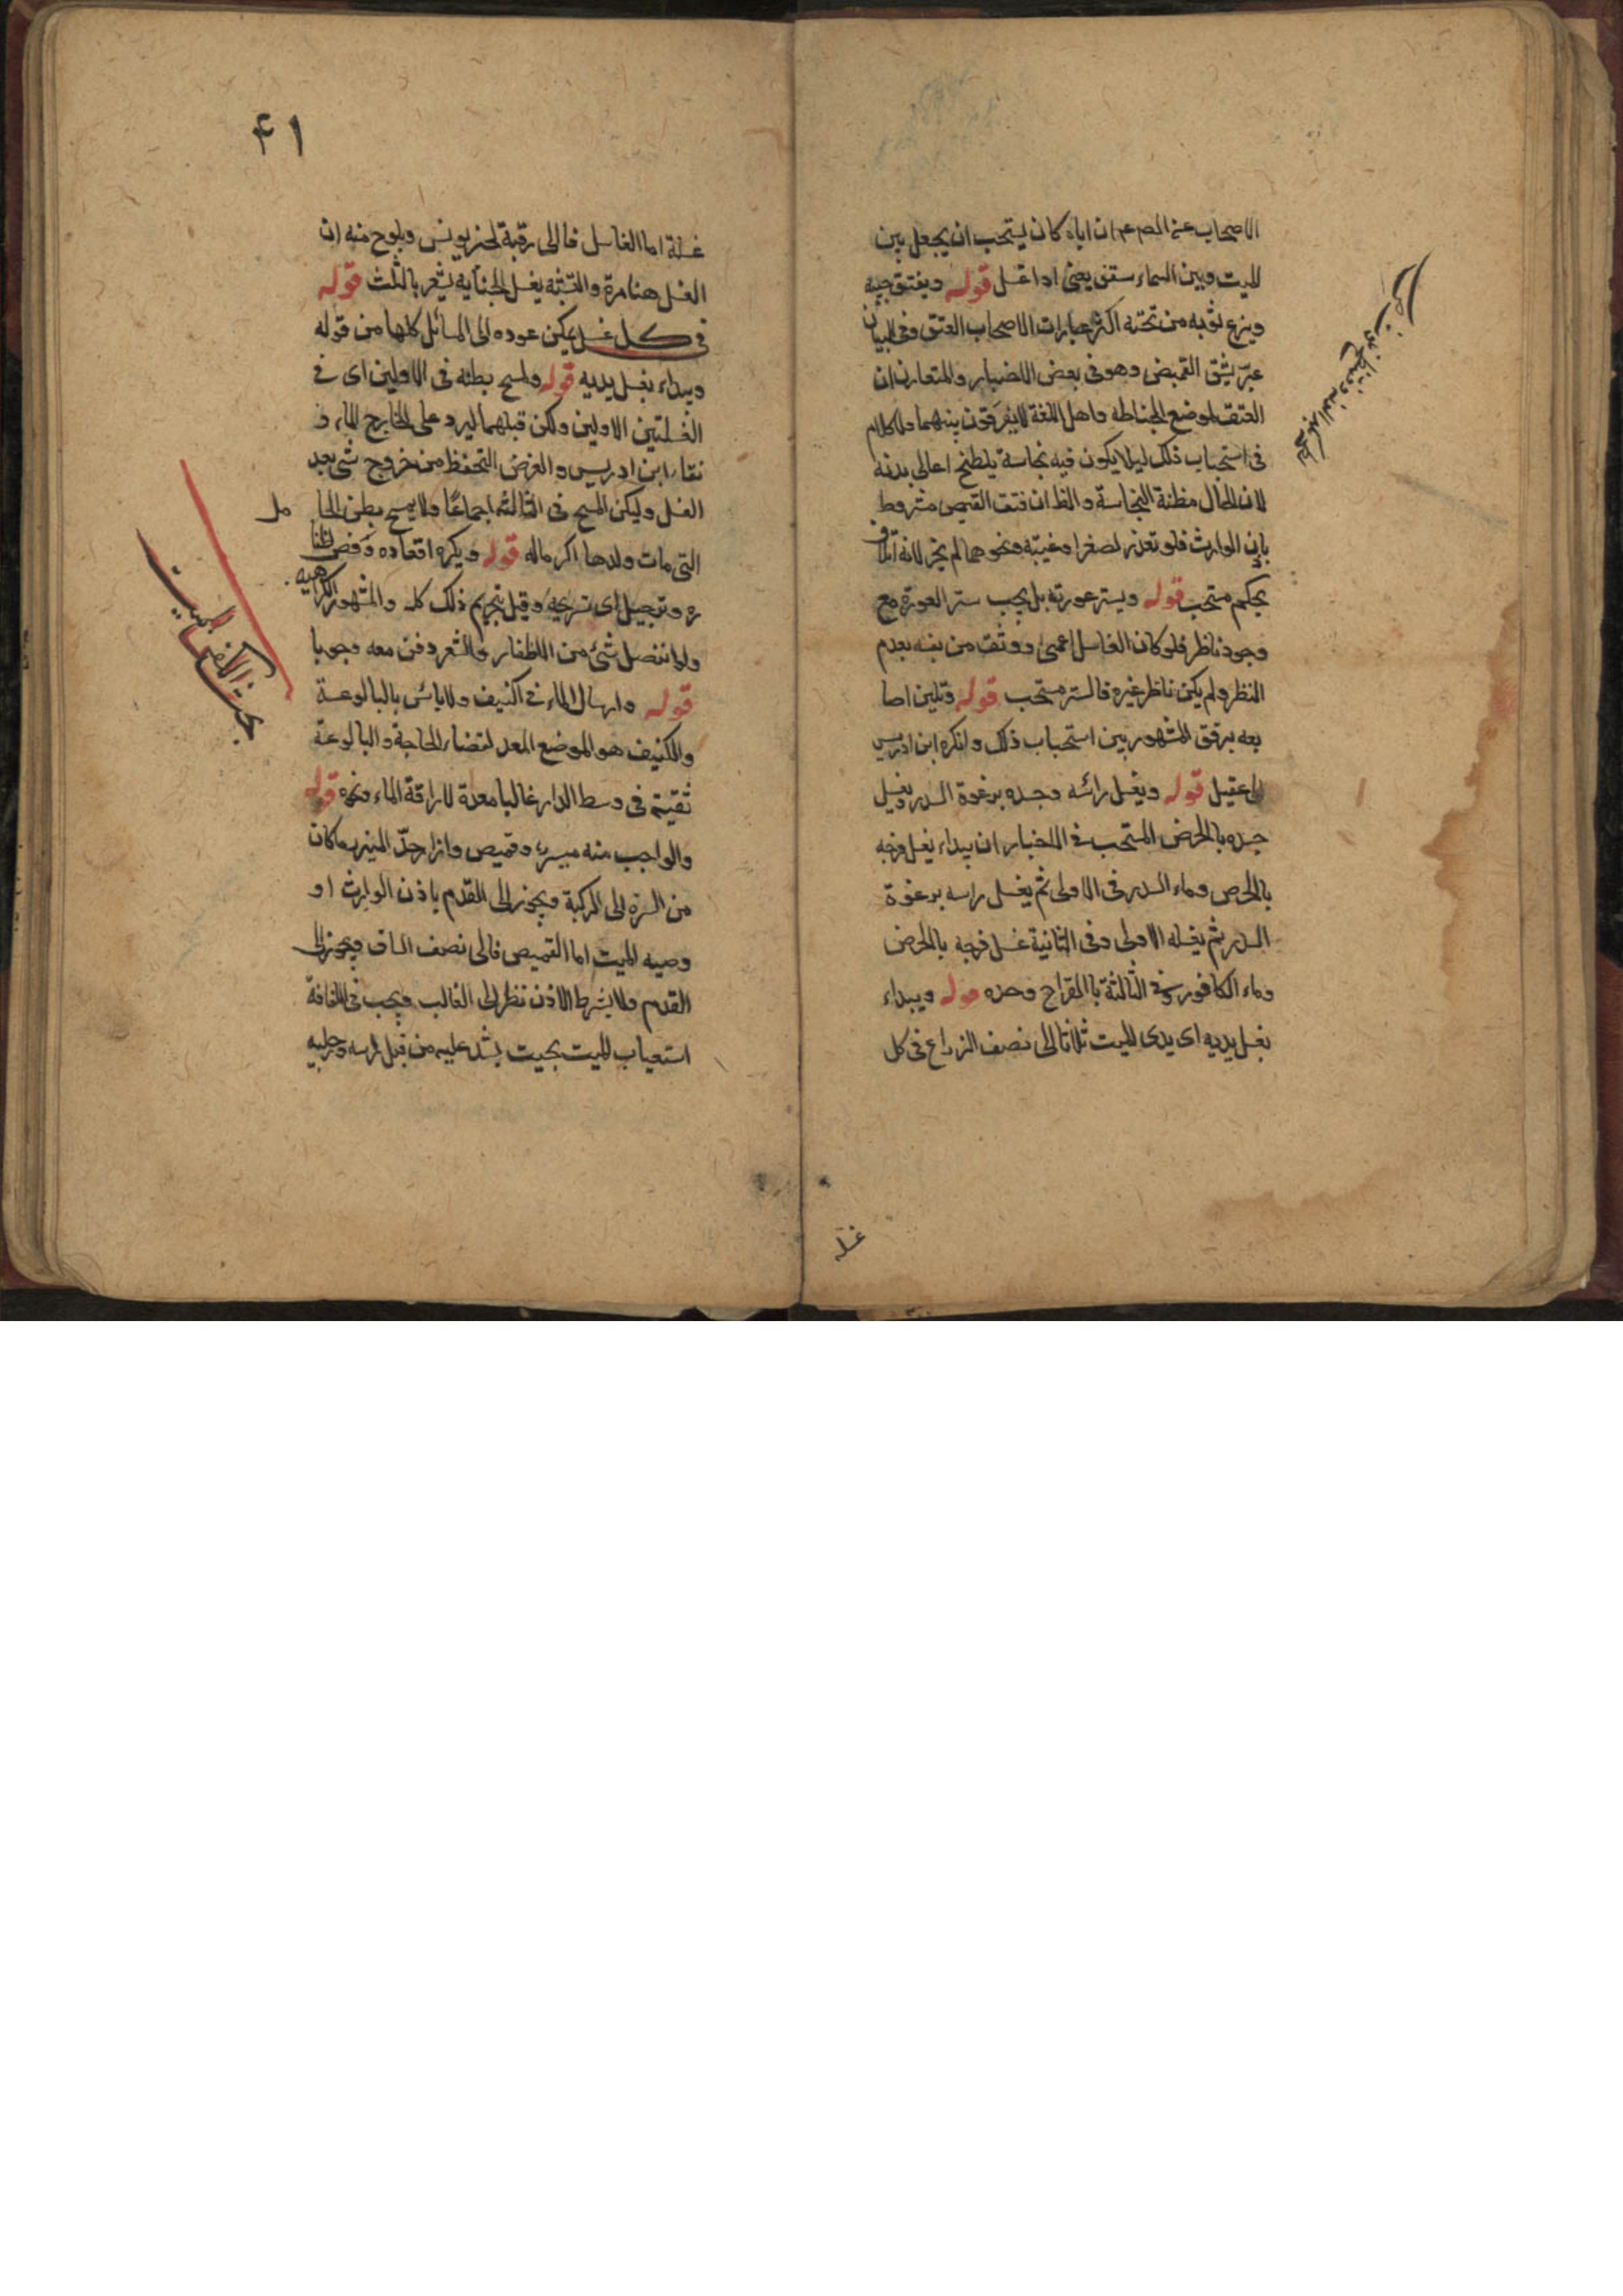 الاصحاب عن الصم عم ان اباه كان يستحب ان يجعل بين
الميت وبين السماء ستر يعنى اذا غسل قوله ويفتق جيبه
وينزع ثوبه من تحته اكثر عبارات الاصحاب الفتق وفى البيان
عبّر بشق القميص وهو فى بعض الاخبار والمتعارف ان
الفتق لموضع الخياطه واهل اللغة لا يفرقون بينهما والكلام
فى استحباب ذلك ليلا يكون فيه نجاسة يلطخ اعالى بدنه
لان الحال مظنة النجاسة والظ ان فتق القميص مشروط
باذن الوارث فلو تعذر لصغر او غيبة ونحوهما لم يجز لانه اتلاف
بحكم مستحب قوله ويستر عورته بل يجب ستر العورة مع
وجود ناظر فلو كان الغاسل اعمى او وثق من نفسه بعدم
النظر ولم يكن ناظر غيره فالستر مستحب قوله وتليين اصا
بعه برفق المشهور بين استحباب ذلك وانكره ابن ادريس
عقيل قوله ويغسل رائسه وجسده برغوة السدر ويغسل
جسده بالحرض المستحب فى الاخبار ان يبداء بغسل فرجه
بالحرض وماء السدر فى الاولى ثم يغسل راسه برغوة
السدر ثم يغسله الاولى وفى الثانية غسل فرجه بالحرض
وماء الكافور وفى الثالثة بالقراح وحده قوله ويبداء
بغسل يديه اى يدى الميت ثلاثا الى نصف الذراع فى كل
غسله
۴۱
غسلة اما الغاسل فالى مرفقه لخبر يونس ويلوح منه ان
الغسل هنا مرة والتشبه بغسل الجنابه يشعر بالثلث قوله
فى كل غسل يمكن عوده الى المسائل كلها من قوله
ويبداء بغسل يديه قوله ومسح بطنه فى الاولين اى فى
الغسلتين الاولين ولكن قبلهما ليرد على الخارج الماء و
نقاء ابن ادريس والغرض التحفظ من خروج شئ بعد
الغسل وليكن المسح فى الثالثه اجماعًا ولا يمسح بطن الحا مل
التى مات ولدها اكراما له قوله ويكره اقعاده وقص اظفا
ره وترجيل اى تسريحه وقيل بتحريم ذلك كله والمشهور الكراهيه
ولو انفصل شئ من الاظفار والشعر دفن معه وجوبا
قوله وارسال الماء فى الكنيف ولا بائس بالبالوعة
والكنيف هو الموضع المعد لقضاء الحاجة والبالوعة
ثقيبة فى وسط الدار غالبا معدة لاراقة الماء ونحوه قوله
والواجب منه ميزر وقميص وازار حدّ الميزر ما كان
من السرة الى الركبة ويجوز الى القدم باذن الوارث او
وصيه الميت اما القميص فالى نصف الساق ويجوز الى
القدم ولا يشرط الاذن نظر الى الغالب ويجب فى اللفافة
استعياب الميت بحيث يشد عليه من قبل راسه ورجليه
بحث الاكفان الميت